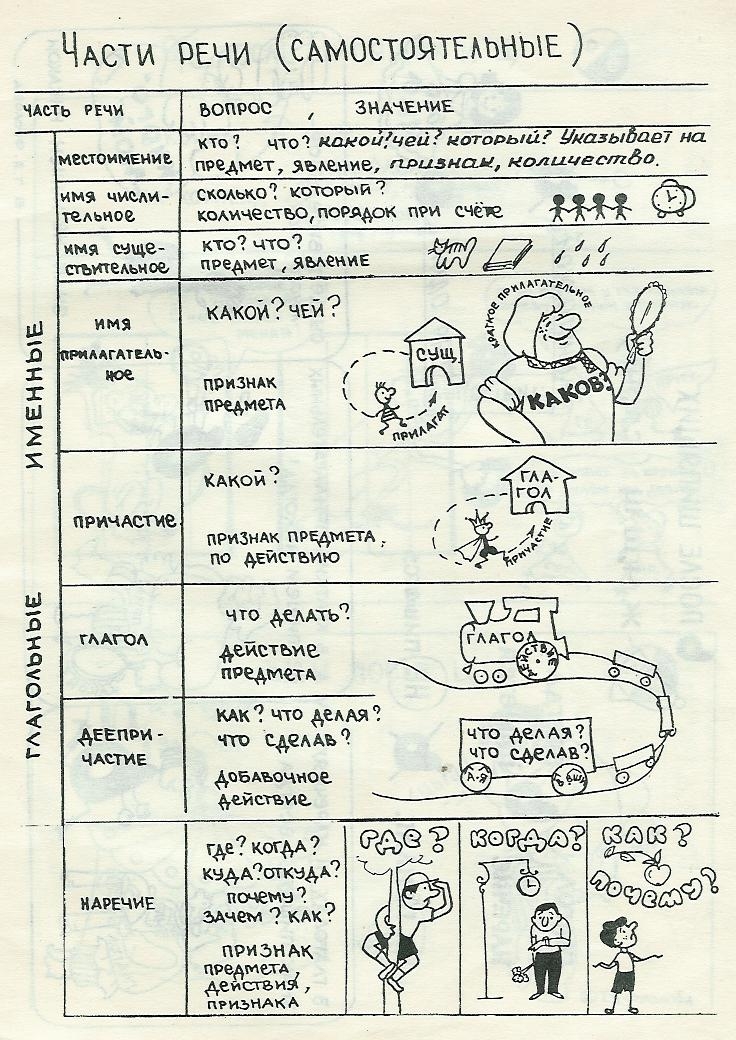 Части речи (самостоятельные)
ЧАСТЬ РЕЧИ ВОПРОС, ЗНАЧЕНИЕ
ИМЕННЫЕ
МЕСТОИМЕНИЕ
КТО? ЧТО? КАКОЙ? ЧЕЙ? КОТОРЫЙ? Указывает на
ПРЕДМЕТ, ЯВЛЕНИЕ, ПРИЗНАК, КОЛИЧЕСТВО.
ИМЯ ЧИСЛИ-
ТЕЛЬНОЕ
СКОЛЬКО? КОТОРЫЙ?
КОЛИЧЕСТВО, ПОРЯДОК ПРИ СЧЁТЕ
ИМЯ СУЩЕ-
СТВИТЕЛЬНОЕ
КТО? ЧТО?
ПРЕДМЕТ, ЯВЛЕНИЕ
ИМЯ
ПРИЛАГАТЕЛЬ-
НОЕ
КАКОЙ? ЧЕЙ?
ПРИЗНАК
ПРЕДМЕТА
СУЩ.
ПРИЛАГАТ
КРАТКОЕ ПРИЛАГАТЕЛЬНОЕ
КАКОВ?
ПРИЧАСТИЕ
КАКОЙ?
ПРИЗНАК ПРЕДМЕТА
ПО ДЕЙСТВИЮ
ГЛА-
ГОЛ
ПРИЧАСТИЕ
ГЛАГОЛЬНЫЕ
ГЛАГОЛ
ЧТО ДЕЛАТЬ?
ДЕЙСТВИЕ
ПРЕДМЕТА
ГЛАГОЛ
ДЕЙСТВИЕ
ДЕЕПРИ-
ЧАСТИЕ
КАК? ЧТО ДЕЛАЯ?
ЧТО СДЕЛАВ?
ДОБАВОЧНОЕ
ДЕЙСТВИЕ
ЧТО ДЕЛАЯ?
ЧТО СДЕЛАВ?
А-Я
НАРЕЧИЕ
ГДЕ? КОГДА?
КУДА? ОТКУДА?
ПОЧЕМУ?
ЗАЧЕМ? КАК?
ПРИЗНАК
ПРЕДМЕТА,
ДЕЙСТВИЯ,
ПРИЗНАКА
ГДЕ?
КОГДА?
КАК?
ПОЧЕМУ?